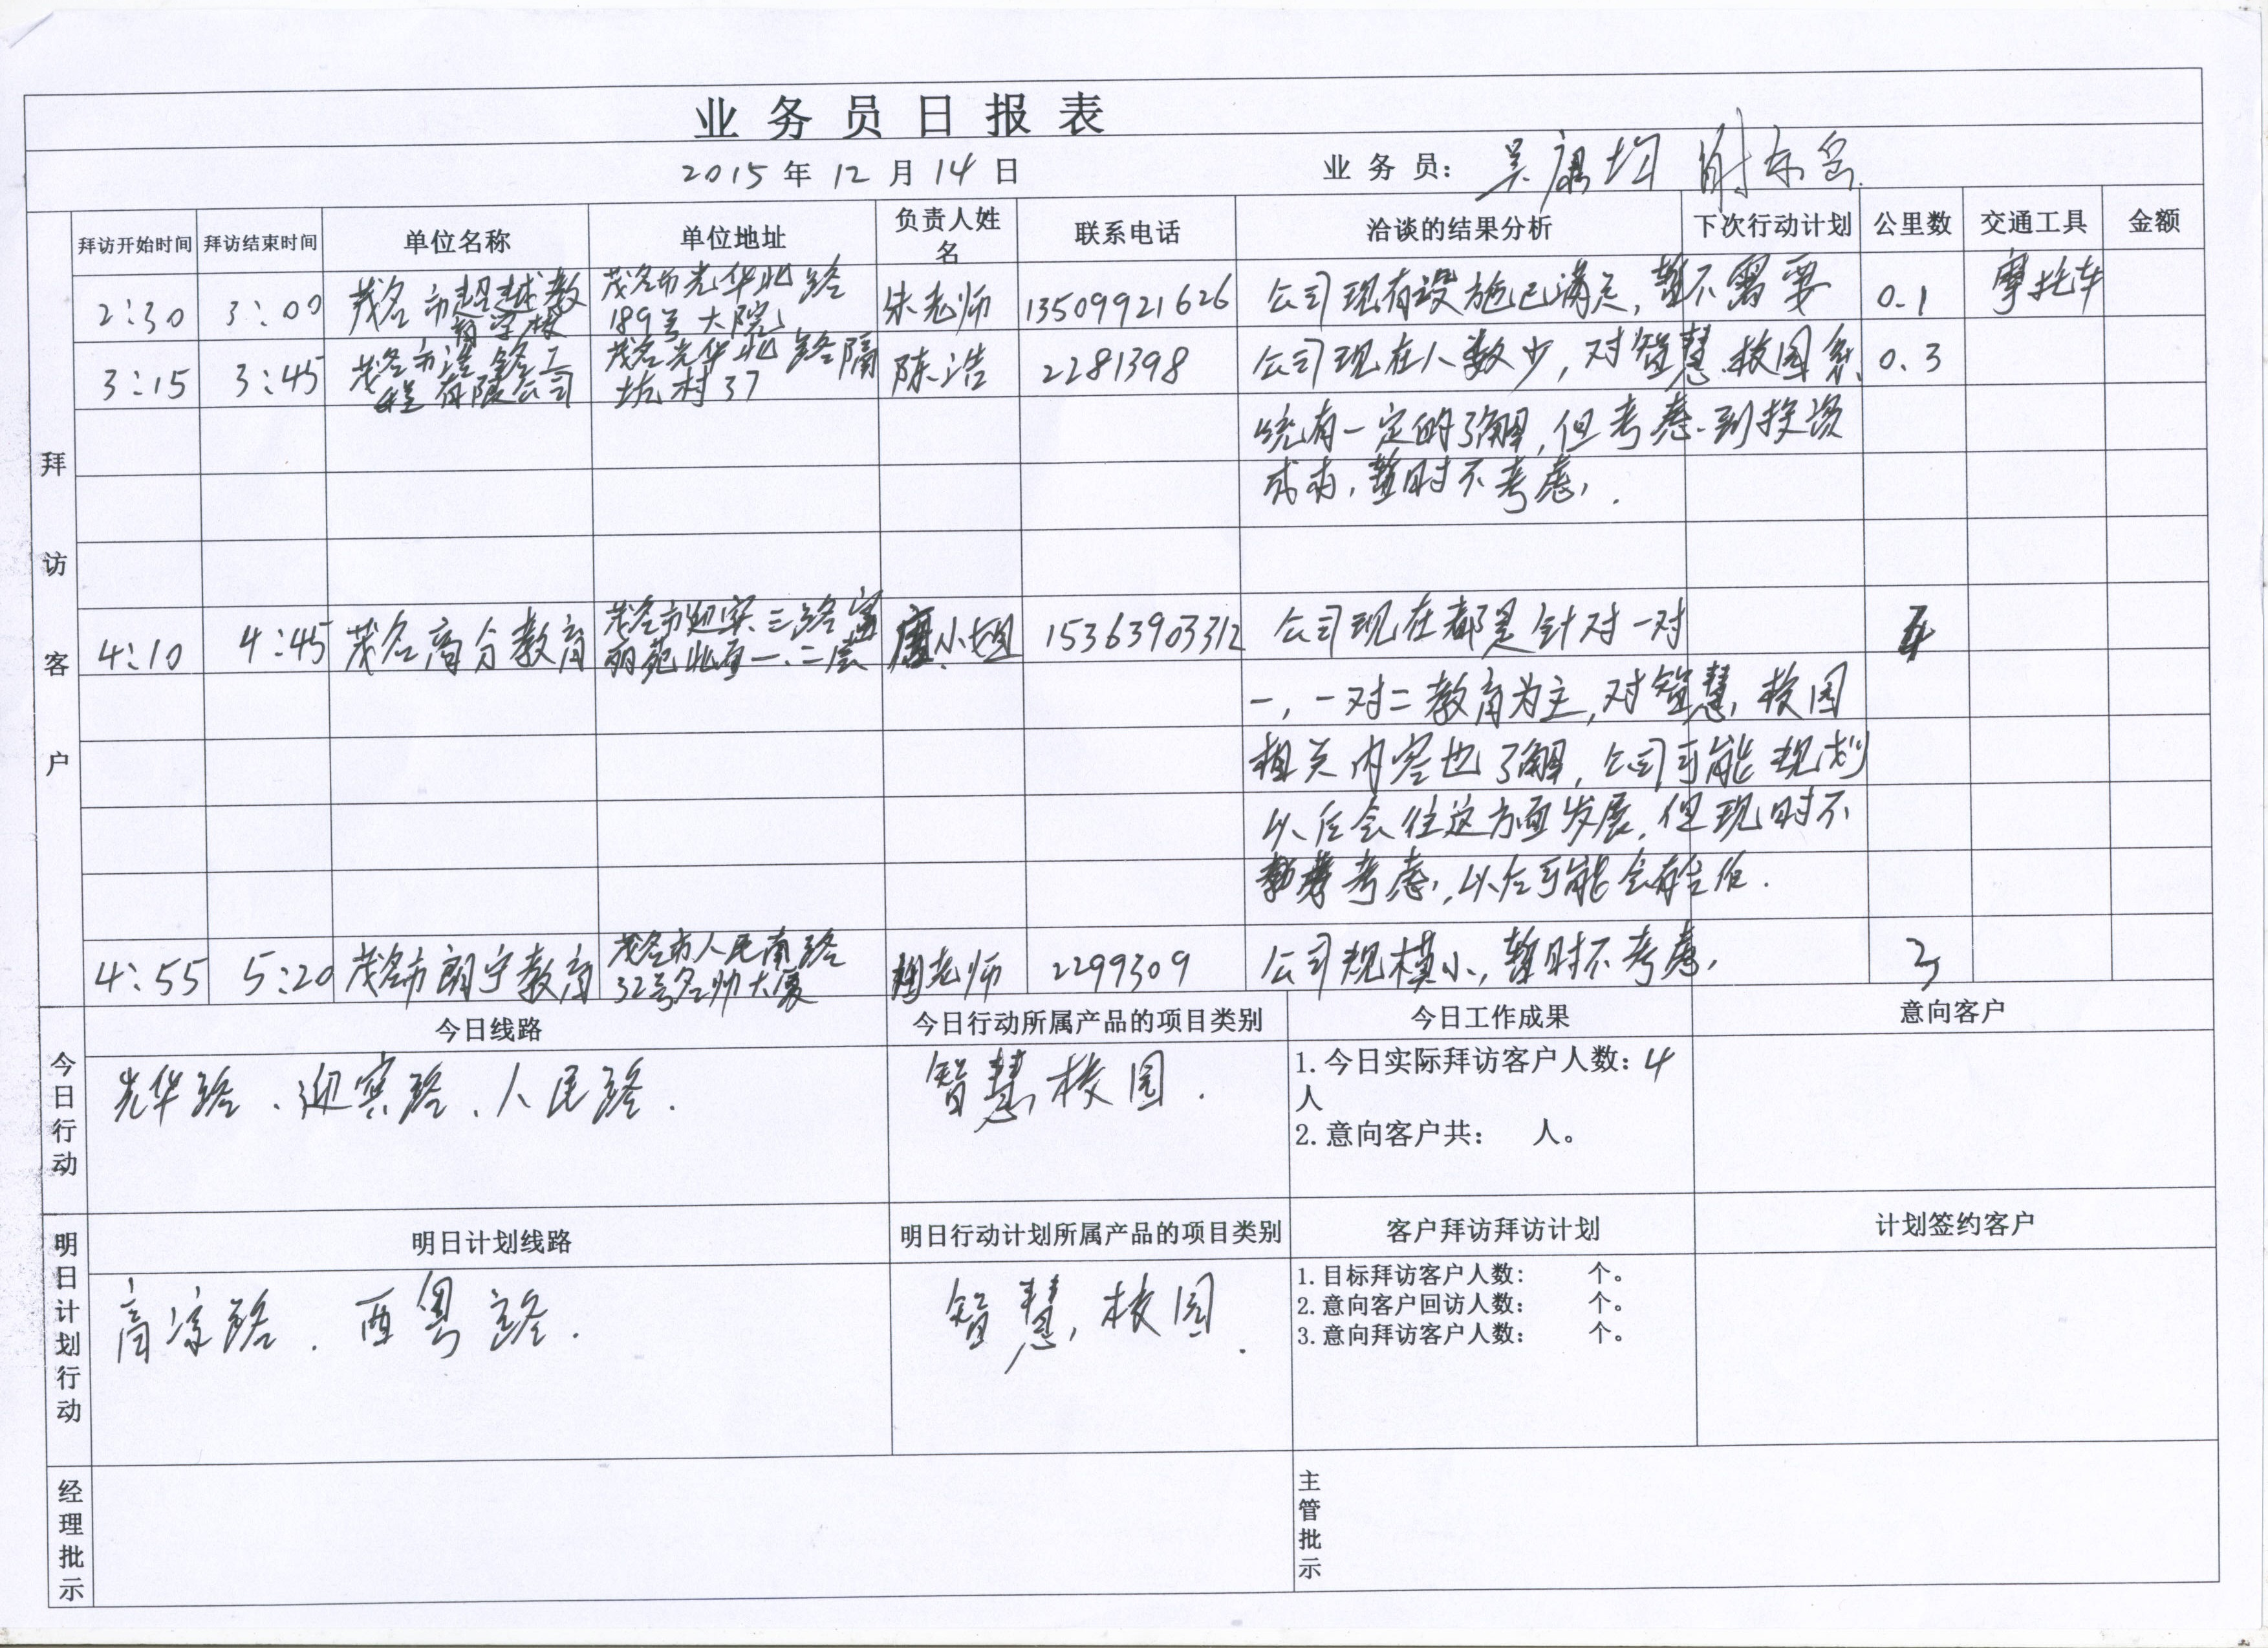 业务员日报表
2015年12月14日 业务员：吴
拜访客户
拜访开始时间 拜访结束时间 单位名称 单位地址 负责人姓名 联系电话 洽谈的结果分析 下次行动计划 公里数 交通工具 金额
2:30 3:00 茂名市超越教育学校 茂名市光华北路189号大院 朱老师 13509921626 公司现有设施已满足,暂不需要 0.1 摩托车
3:15 3:45 茂名市浩铭工程有限公司 茂名光华北路隔坑村37 陈浩 2281398 公司现在人数少,对智慧校园系 0.3
统有一定的了解,但考虑到投资
成本,暂时不考虑.
4:10 4:45 茂名高分教育 茂名市迎宾三路富丽苑北面一、二层 小姐 15363903312 公司现在都是针对一对
一,一对二教育为主,对智慧校园
相关内容也了解,公司可能规划
以后会往这方面发展,但现时不
考虑,以后可能会有合作.
4:55 5:20 茂名市朗宁教育 茂名市人民南路32号名帅大厦 老师 2299309 公司规模小,暂时不考虑, 3
今日行动
今日线路 今日行动所属产品的项目类别 今日工作成果 意向客户
光华路、迎宾路、人民路. 智慧校园. 1.今日实际拜访客户人数：4
人
2.意向客户共： 人。
明日计划行动
明日计划线路 明日行动计划所属产品的项目类别 客户拜访拜访计划 计划签约客户
高凉路.西粤路. 智慧校园. 1.目标拜访客户人数： 个。
2.意向客户回访人数： 个。
3.意向拜访客户人数： 个。
经理批示
主管批示